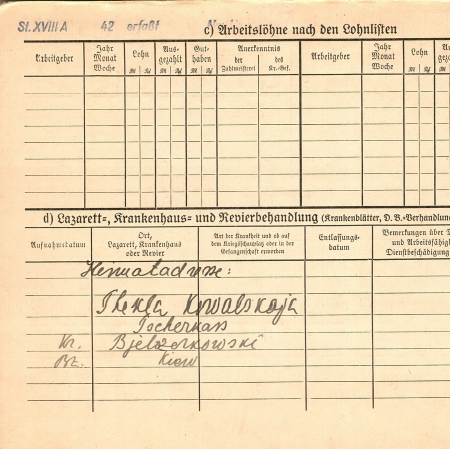 St. XVIII A 42 erfaßt
c) Arbeitslöhne nach den Lohnlisten
Arbeitgeber
Jahr Monat Woche
Lohn
Aus-gezahlt
Gut-haben
Anerkenntnis
der Zahlmeisterei
des Kr.-Gef.
Arbeitgeber
Jahr Monat Woche
Lohn
d) Lazarett-, Krankenhaus- und Revierbehandlung (Krankenblätter, D.B.-Verhandlung
Aufnahmedatum
Ort,
Lazarett, Krankenhaus
oder Revier
Art der Krankheit und ob auf
dem Kriegsschauplatz oder in der
Gefangenschaft erworben
Entlassungs-
datum
Bemerkungen über
und Arbeitsfähig
Dienstbeschädigung
Heimatadresse:
Thekla Kowalskaja
Tscherkass
Kr. Bjelzerkowski
Bz. Kiew